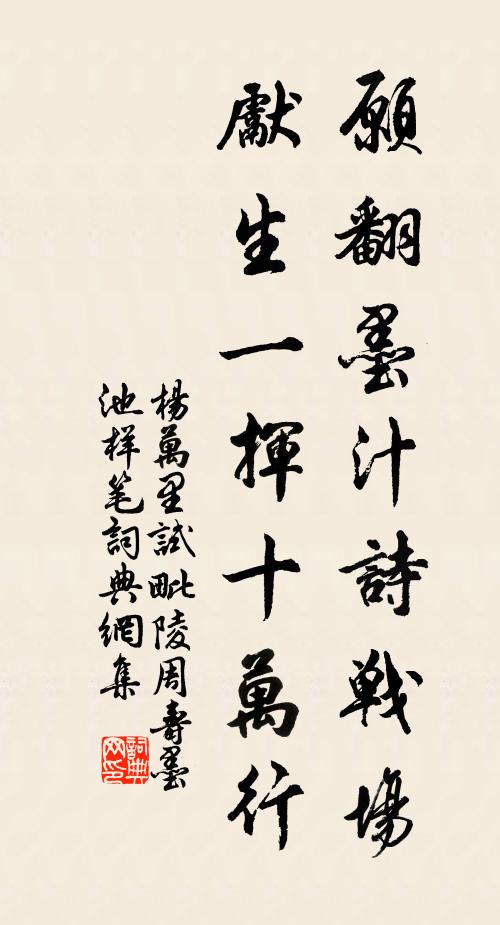 願翻墨汁詩戰場
獻生一揮十萬行
楊萬里試毗陵周壽墨
池样笔詞典網集
詞典
网印